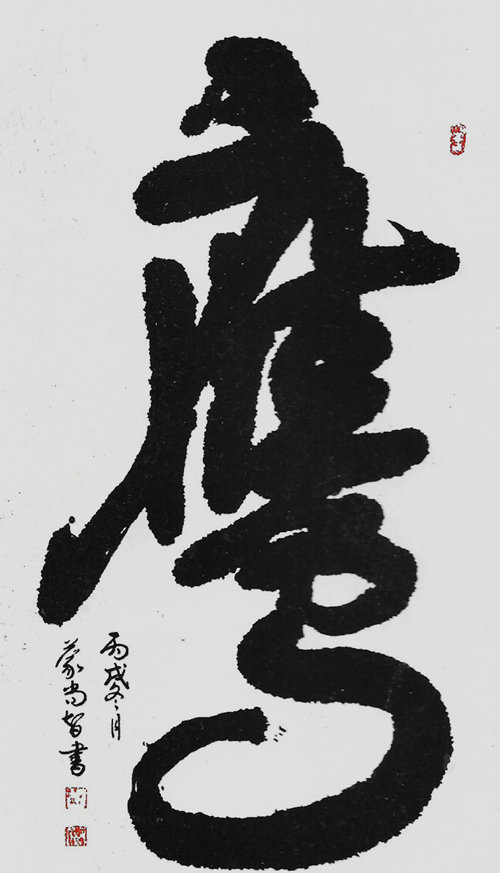 鹰
丙戌冬月
蒙尚智書